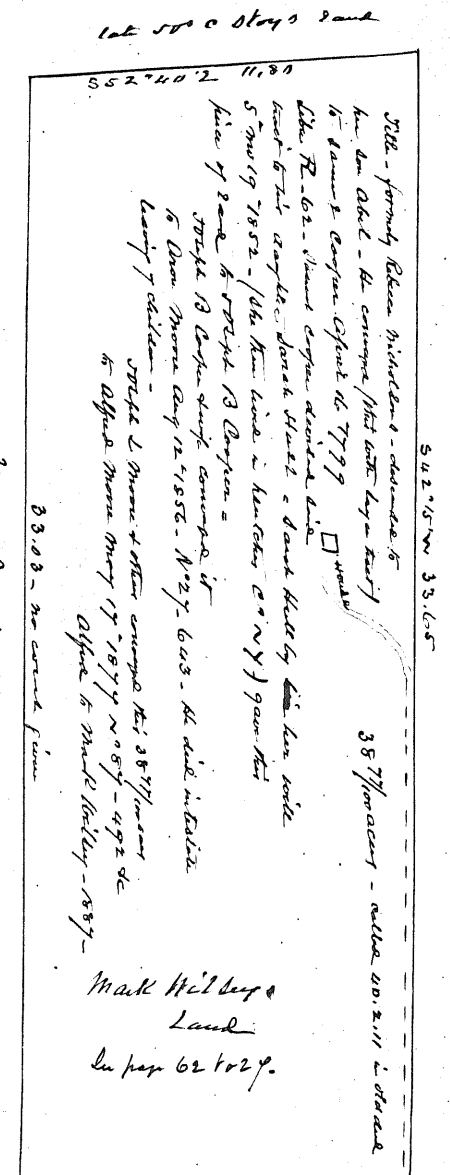 late Jos C Stoys Land
S 52° 40' 2 11,80
S 42° 15' W 33.65
Title - formerly Rebecca Nicholsons - descended to
her son Abel - He conveyed this with larger tract
to Samuel Cooper 1799
Liber R - 62 - Samuel Cooper devised said
tract to his daughter Sarah Hull = Sarah Hull by her will
5th mo 19th 1852 - (She then lived in Co N Y) gave this
piece of Land to Joseph B Cooper =
Joseph B Cooper & wife conveyed it
to Moore Aug 12th 1856 - No 27 - 643 - He died intestate
leaving 7 children -
Joseph L Moore & others conveyed this 38 77/100 acres
to Alfred Moore May 19th 1874 No 87 - 492 &c
Alfred to Mark Wilsey - 1887 -
House
38 77/100 acres - called 40.2.11 in old deed
33.03 - no course given
Mark Wilseys
Land
See page 62 to 29.